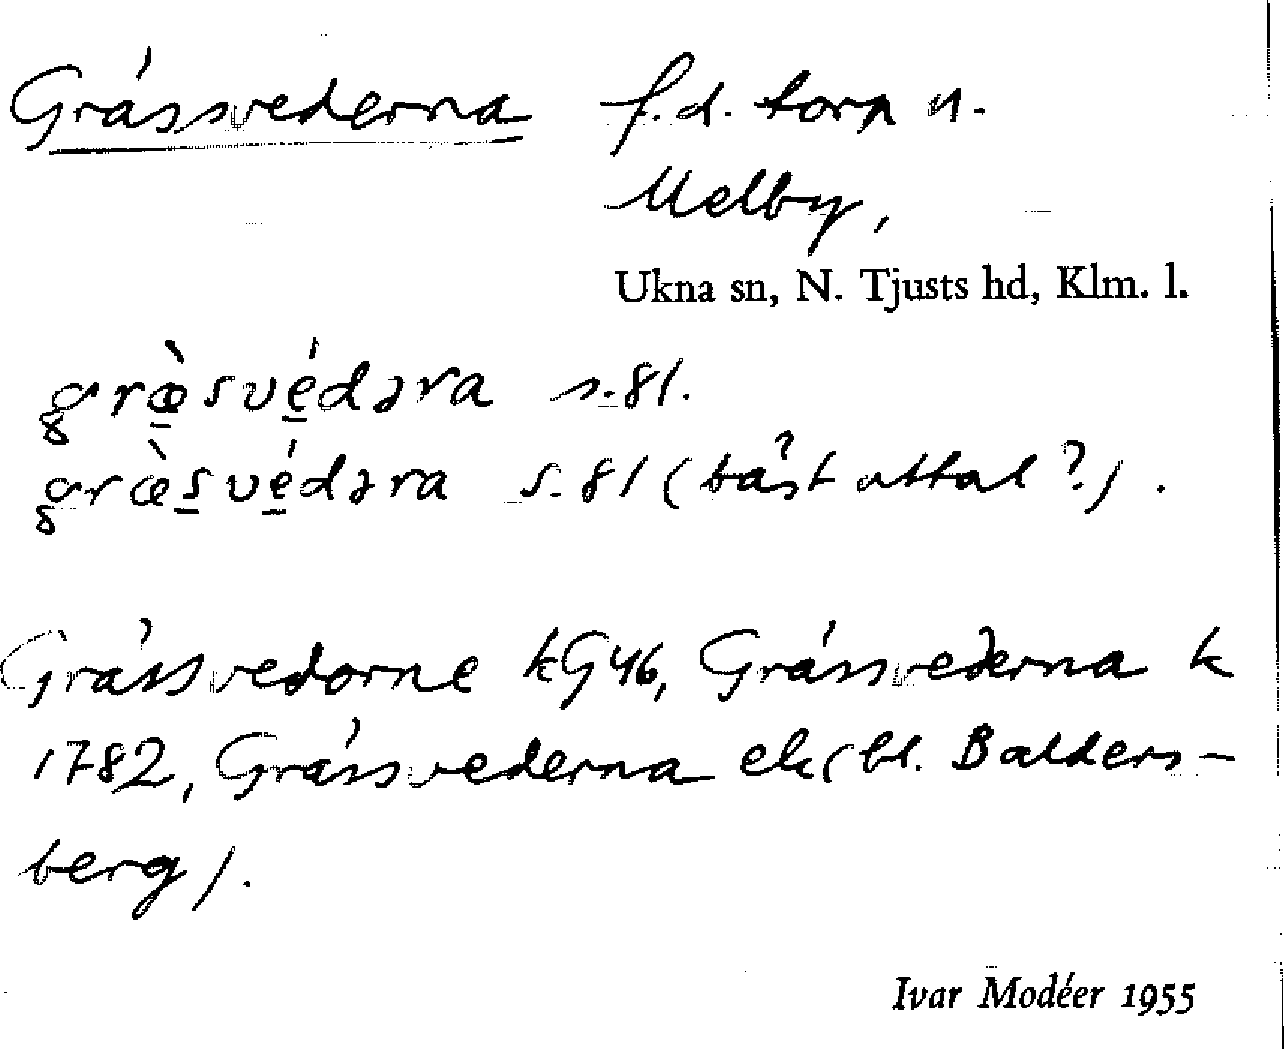 Grässvederna f.d. torp u.
Melby,
Ukna sn, N. Tjusts hd, Klm. l.
græ̀svédəra s.81.
græ̀svédəra s.81 (bäst uttal?).
Grässvedorne kG46, Grässvederna k
1782, Grässvederna ek (bl. Balders-
berg).
Ivar Modéer 1955